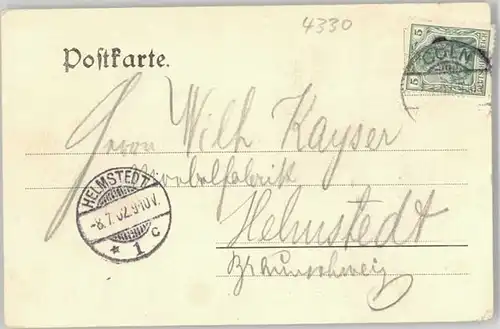 4330
Postkarte.
5 5
CÖLN
Herrn Wilh. Kayser
Möbelfabrik
Helmstedt
Braunschweig
HELMSTEDT
-8.7.02.9-10V.
* 1 c